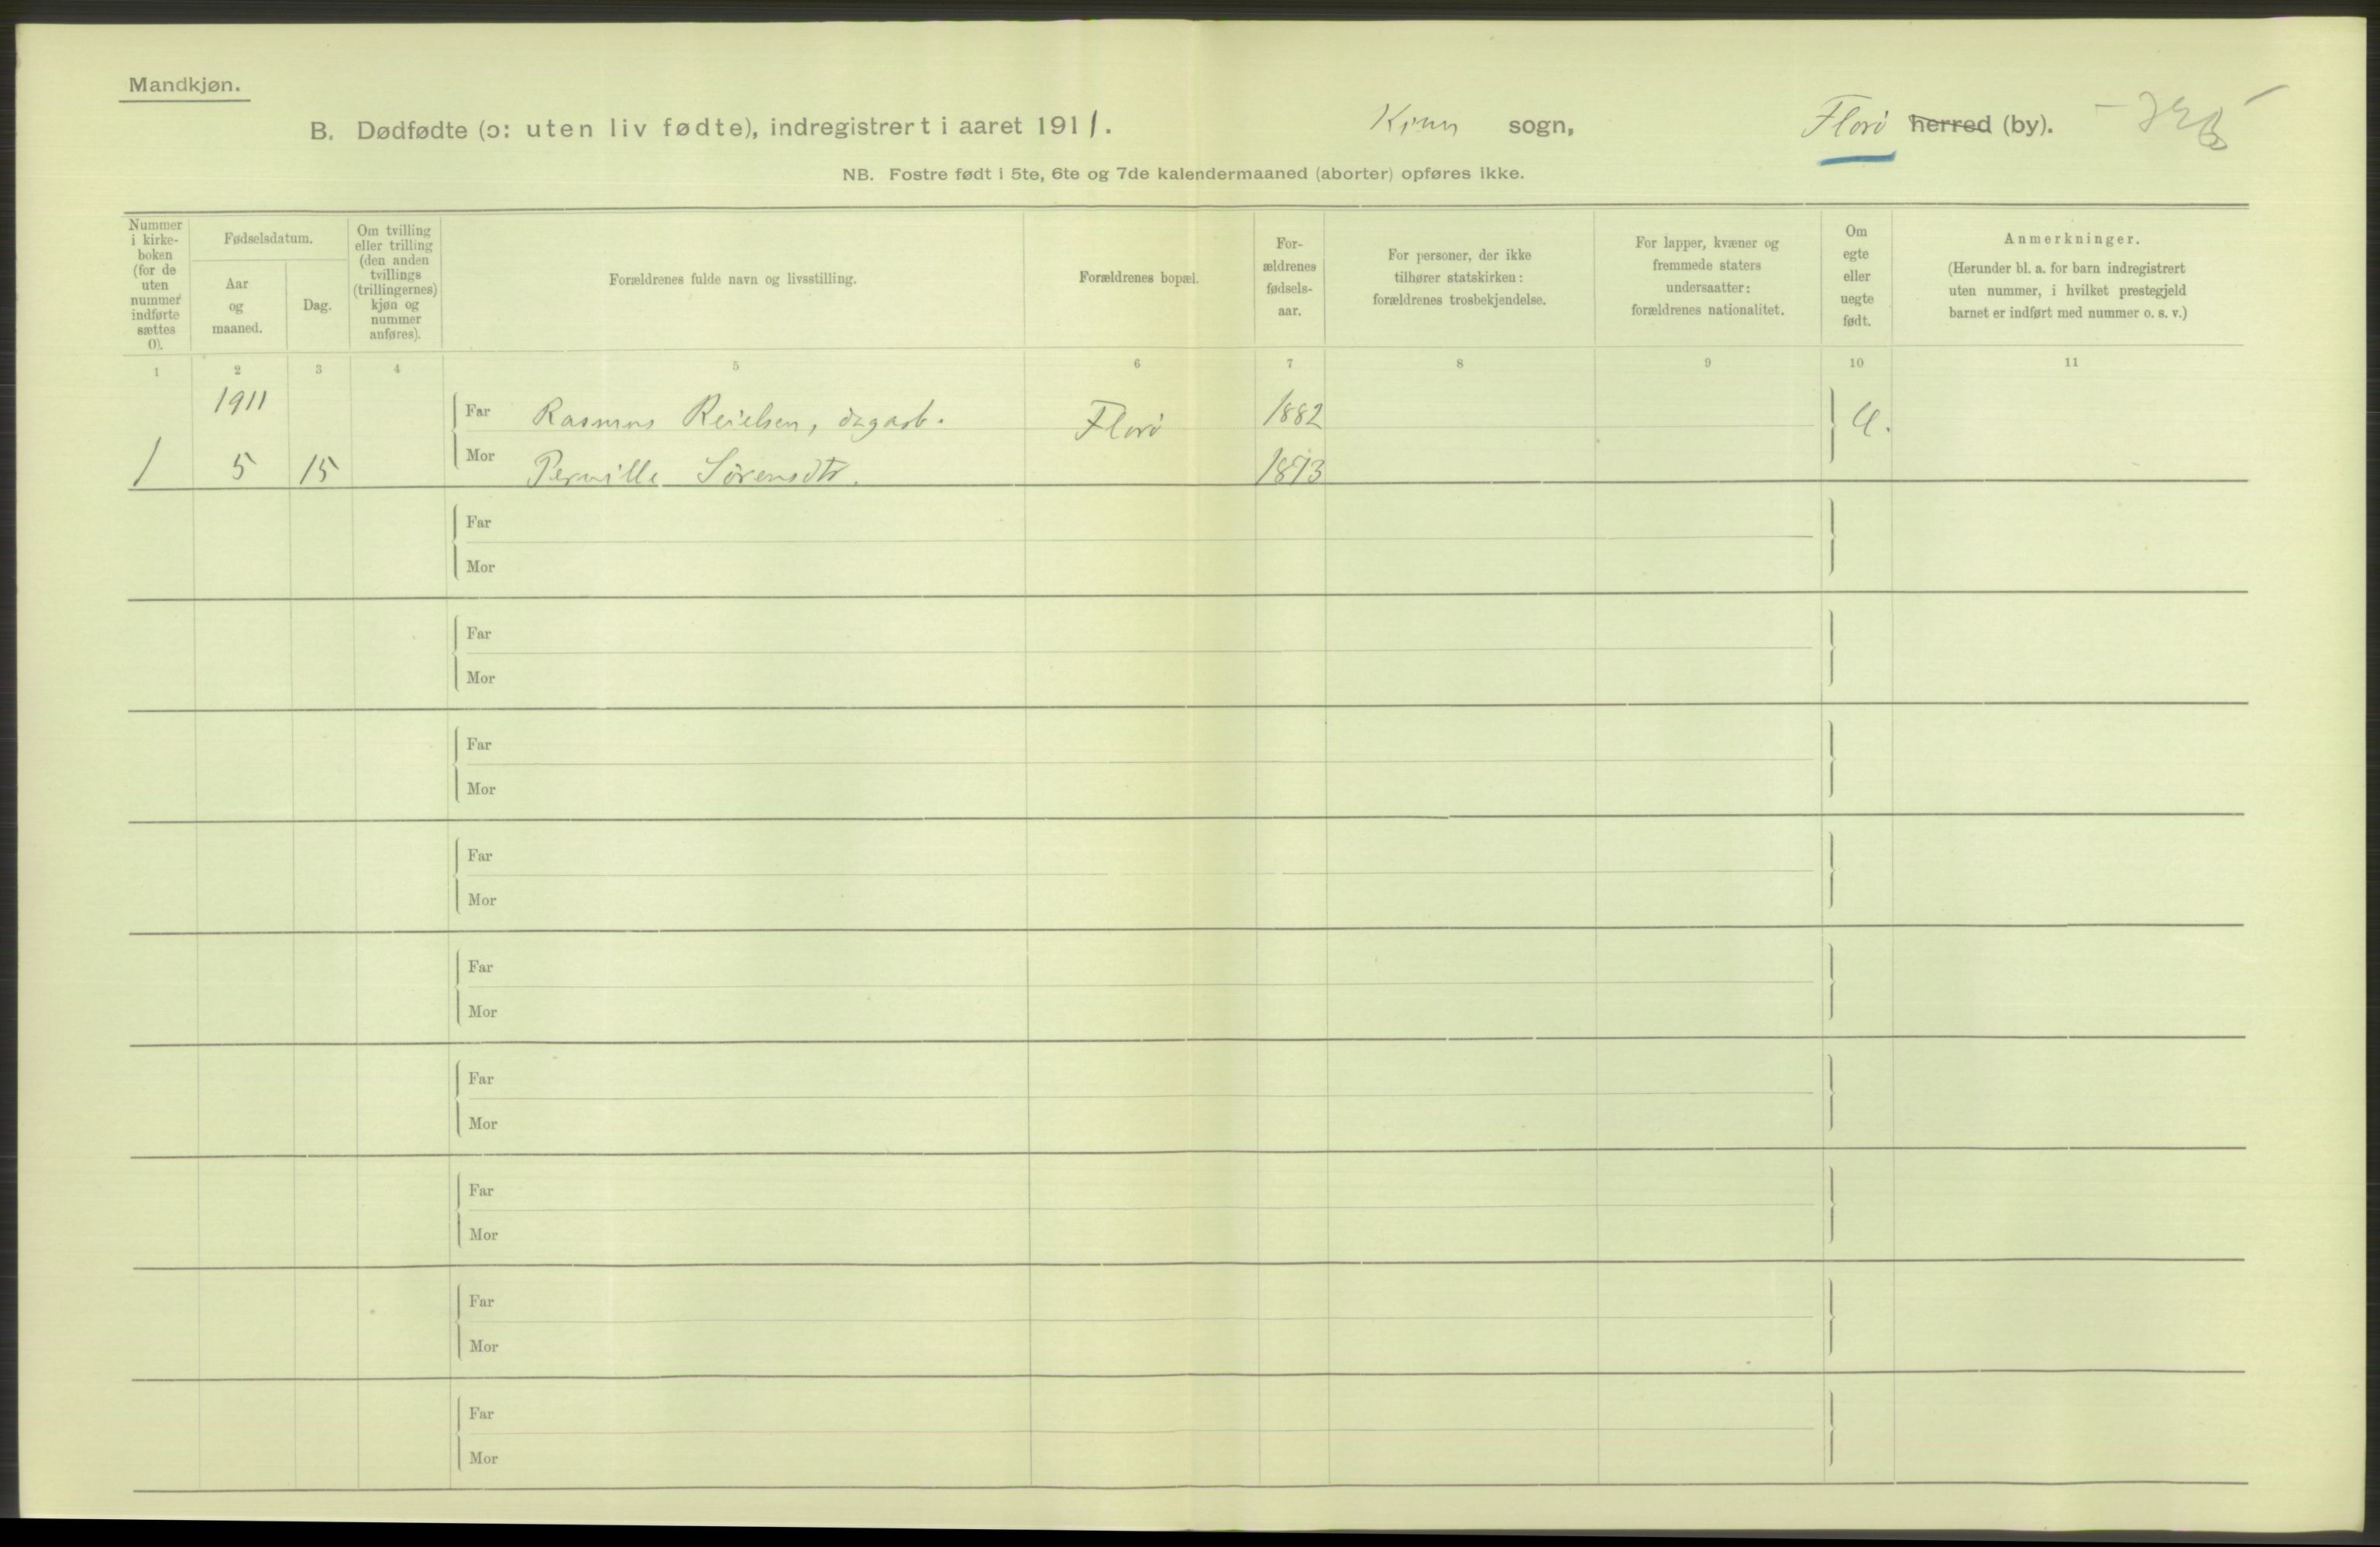 Mandkjøn.
B. Dødfødte (ɔ: uten liv fødte), indregistrert i aaret 1911.
Kinn sogn,
Florö herred (by).
NB. Fostre født i 5te, 6te og 7de kalendermaaned (aborter) opføres ikke.
Nummer
i kirke-
boken
(for de
uten
nummer
indførte
sættes
0).
Fødselsdatum.
Aar
og
maaned.
Dag.
Om tvilling
eller trilling
(den anden
tvillings
(trillingernes)
kjøn og
nummer
anføres).
Forældrenes fulde navn og livsstilling.
Forældrenes bopæl.
For-
ældrenes
fødsels-
aar.
For personer, der ikke
tilhører statskirken:
forældrenes trosbekjendelse.
For lapper, kvæner og
fremmede staters
undersaatter:
forældrenes nationalitet.
Om
egte
eller
uegte
født.
Anmerkninger.
(Herunder bl. a. for barn indregistrert
uten nummer, i hvilket prestegjeld
barnet er indført med nummer o. s. v.)
1 2 3 4 5 6 7 8 9 10 11
1911
Far Rasmus Reielsen, dagarb. Florö 1882
1 5 15 Mor Pernille Sörensdtr. 1873
Far
Mor
Far
Mor
Far
Mor
Far
Mor
Far
Mor
Far
Mor
Far
Mor
Far
Mor
Far
Mor